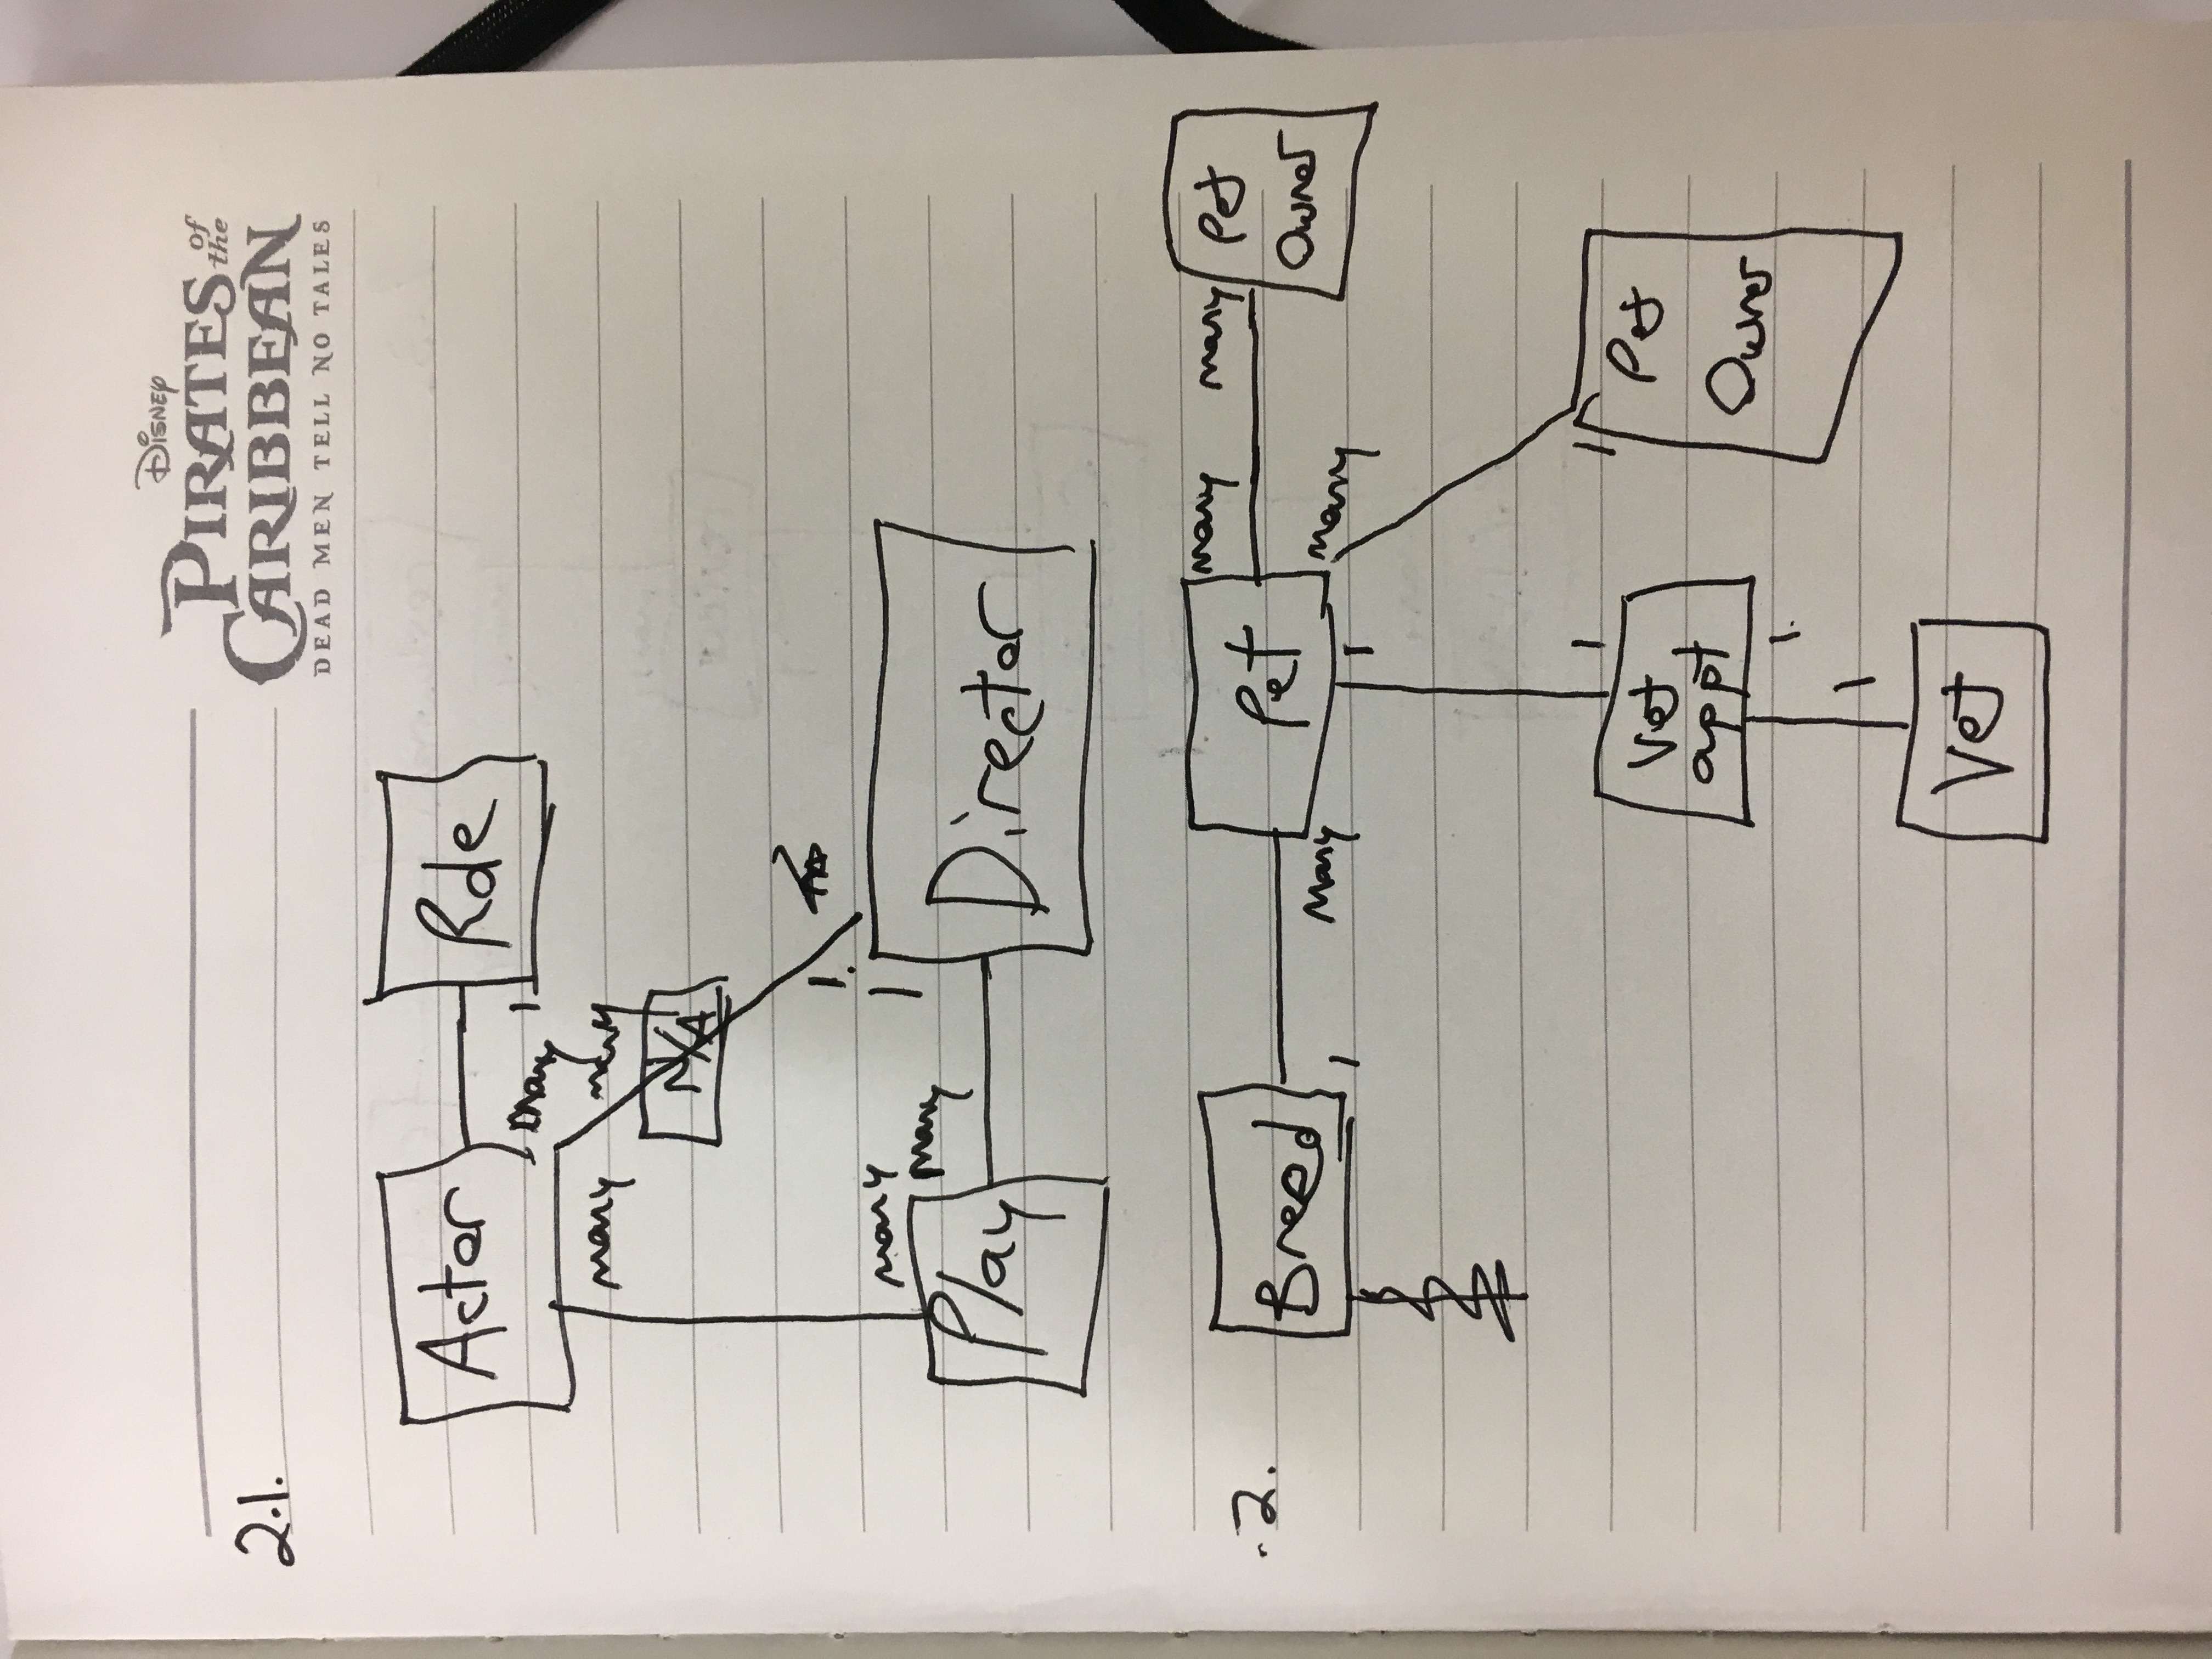 DISNEY
PIRATES of the
CARIBBEAN
DEAD MEN TELL NO TALES
2.1.
Actor
Role
many
1
many
many
N/A
1.
1
many
many
Play
Director
.2.
Breed
1
many
Pet
many
many
Pet
Owner
many
1
Pet
Owner
1
1
Vet
appt
1.
1
Vet